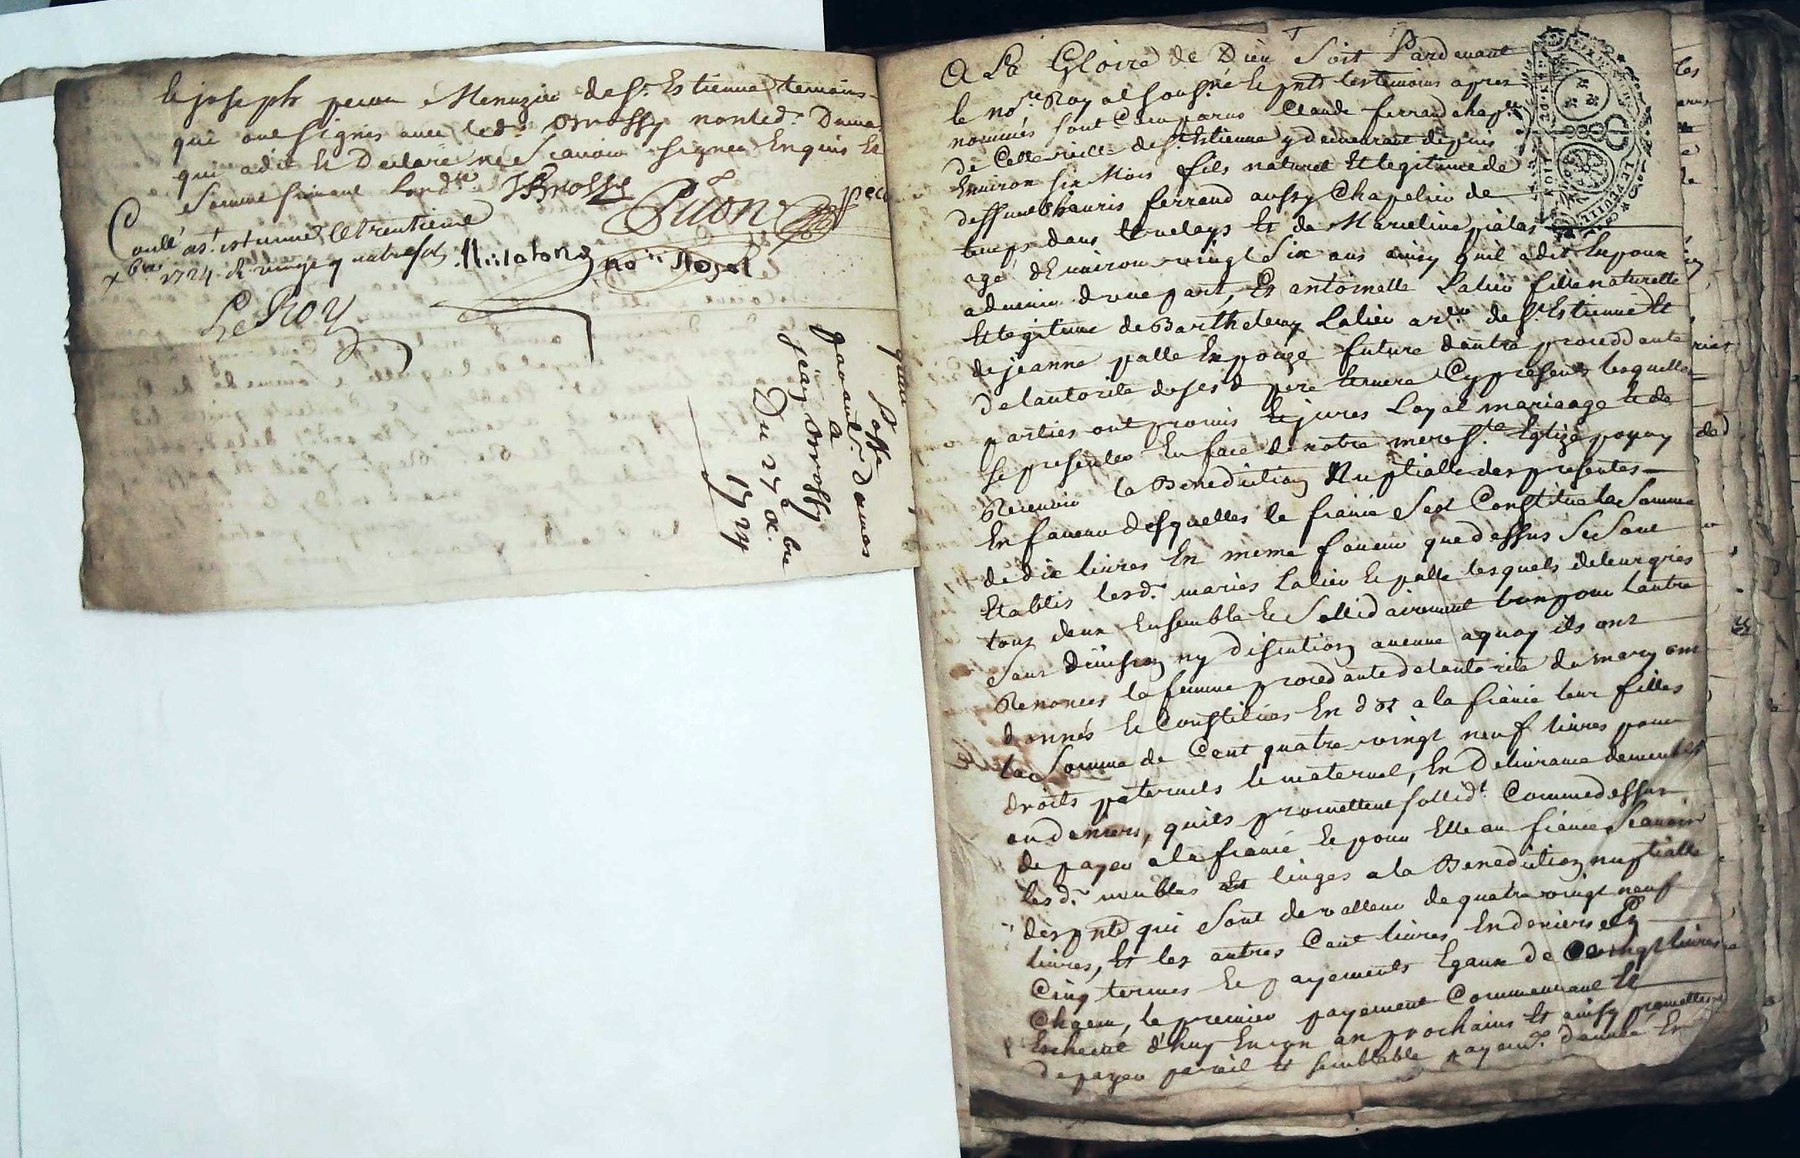 le joseph peron Menuzier de St. Estienne temoins
qui ont signés avec led. Brossy non led. Dama
qui a dit et Declaré ne Scavoir signer Enquis Et
Somme
JBrossy
Pition
Conllé a st. estienne le trentieme
xbre 1724. R vingt quatre sols
no.re Royal
LeRoy
quitt
passée
Damas
a
jean Brossy
Du 27e xbre
1724
A La Gloire de Dieu Soit Pardevant
le nore. Royal sousné. et pnts les temoins apres
nommés sont Comparus Claude ferrand chapr.
de Cette ville de St Estienne y demeurant depuis
Environ six Mois fils naturel Et legitime de
deffunt ferrand aussy Chapelier de
temps dans le velays Et de Marceline
agé d'Environ vingt Six ans ainsy qu'il a dit Epoux
advenir d'une part, Et antoinette Lalier fille naturelle
Et legitime de Barthelemy Lalier de St Estienne Et
de jeanne palle Epouze future d'autre proceddante
de lautorité de ses d. pere et mere Cy presents lesquelles
parties ont promis Et jurés Loyal mariaage et de
se presenter En face de notre mere ste. Eglize pour y
Recevoir la Benediction Nuptialle des presentes
En faveur desquelles le fiancé s'est Constitué la Somme
de dix livres En meme faveur que dessus se sont
Etablis lesd. mariés Lalier et palle lesquels de leur grés
tous deux Ensemble et Sollidairement l'un pour lautre
sans division ny discution aucune a quoy ils ont
Renoncés la femme procedante de lautorité du mary ont
donnés et Constitués En dot a la fiancée leur filles
la Somme de Cent quatre vingt neuf livres pour
droits paternels et maternel, En Delivrance de meubles
ou deniers, quils promettent sollidt. Comme dessus
de payer a la fiancé et pour Elle au fiancé scavoir
lesd. meubles Et linges a la Benediction nuptialle
des pntes qui sont de valleur de quatre vingt neuf
livres, Et les autres Cent livres En deniers En
Cinq termes et payements Egaux de vingt livres
Chacun, le premier payement Commencant Et
Echeant d'huy En un an prochains Et ainsy promettent
de payer pareil Et semblable payemt. d'année En